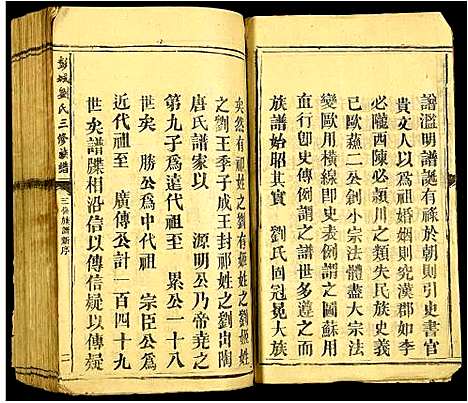 譜濫明譜誕有祿於朝則引史書官
貴文人以為祖婚姻則究漢郡如李
必隴西陳必潁川之類失民族史義
已歐蘇二公創小宗法體盡大宗法
變歐用橫線即史表例之圖蘇用
直行卽史傳例謂之譜世多遵之而
族譜始昭其實　劉氏固冠冕大族
矣然有祁姓之劉有姬姓之劉有姬姓
之劉王季子成王封祁姓之劉出陶
唐氏譜家以　源明公乃帝堯之
第九子為遠代祖至　累公一十八
世矣　勝公為中代祖　宗臣公為
近代祖至　廣傳公計一百四十九
世矣譜牒相沿信以傳信疑以傳疑
彭城劉氏三修族譜
三修族譜新序
二